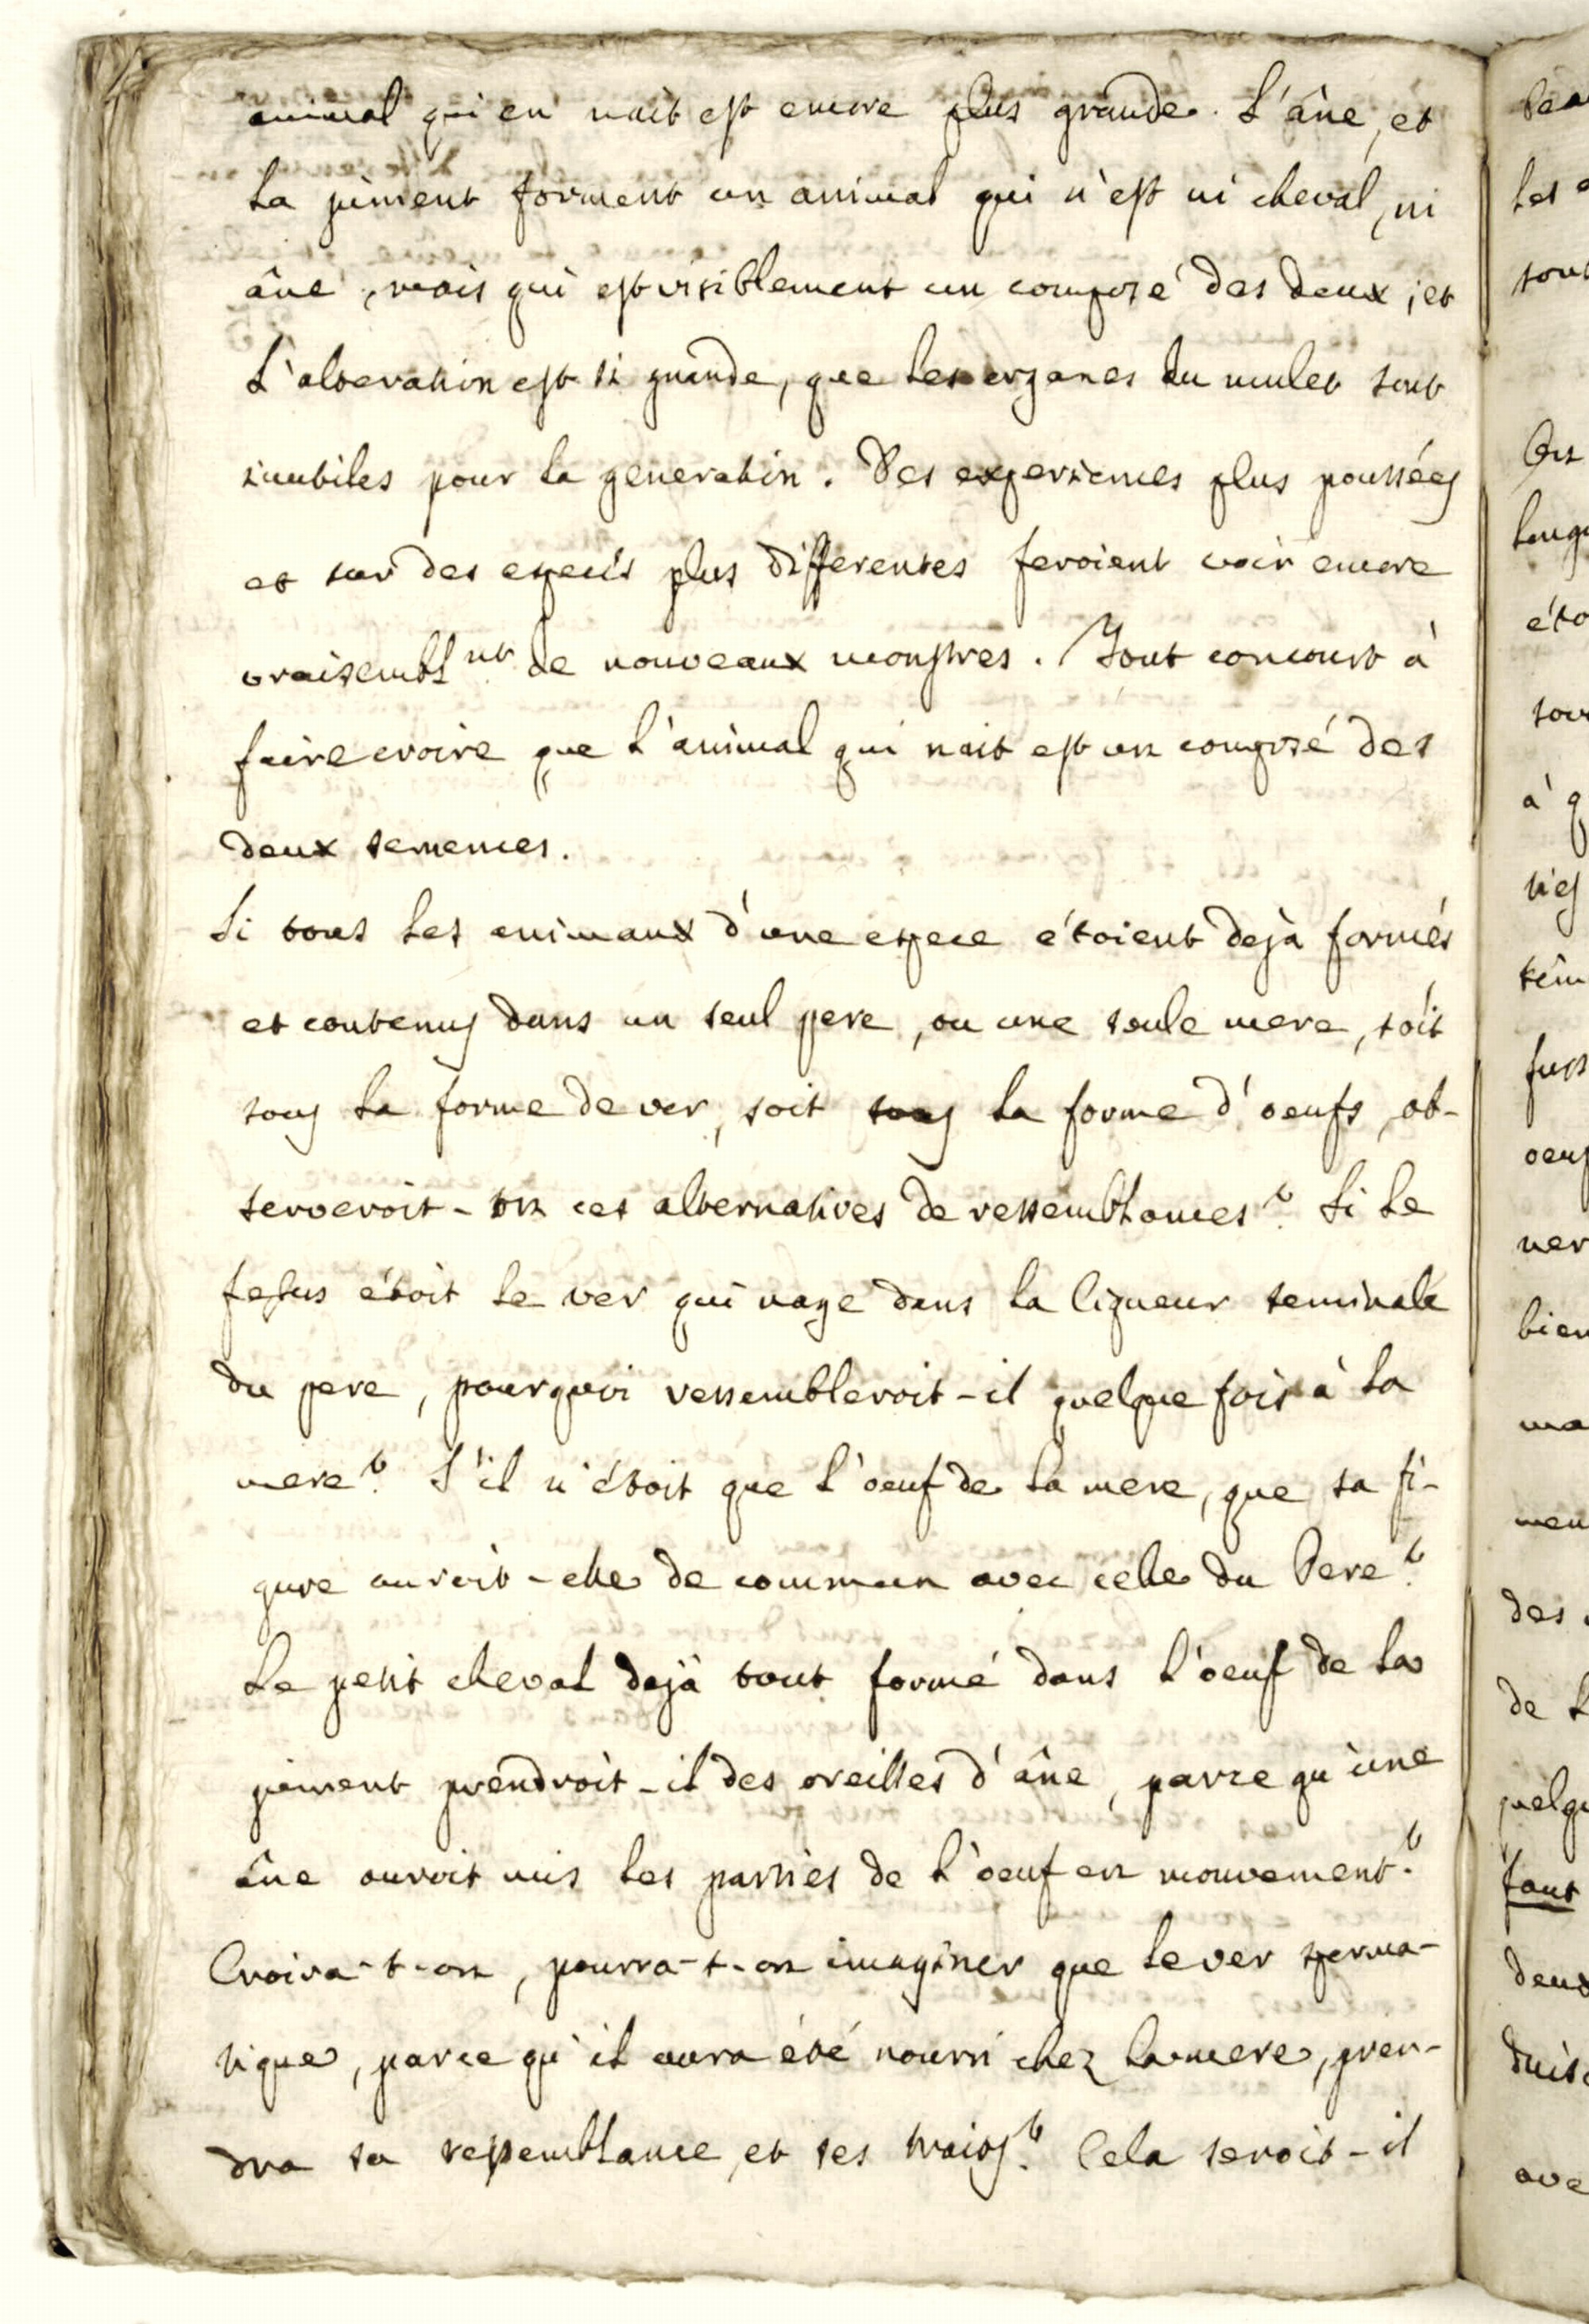 animal qui en nait est encore plus grande. L'âne, et
la jument forment un animal qui n'est ni cheval, ni
âne, mais qui est visiblement un composé des deux ; et
L'alteration est si grande, que les organes du mulet sont
inutiles pour la generation. Des experiences plus poussées
et sur des especes plus differentes feroient voir encore
vraisembl.nt de nouveaux monstres. Tout concourt à
faire croire que l'animal qui nait est un composé des
deux semences.
Si tous les animaux d'une espece étoient dejà formés
et contenus dans un seul pere, ou une seule mere, soit
sous la forme de ver, soit sous la forme d'oeufs, ob-
serveroit-on ces alternatives de ressemblances ? Si le
fetus étoit le ver qui nage dans la liqueur seminale
du pere, pourquoi ressembleroit-il quelque fois à la
mere ? S'il n'étoit que l'oeuf de la mere, que sa fi-
gure auroit-elle de commun avec celle du Pere ?
Le petit cheval dejà tout formé dans l'oeuf de la
jument prendroit-il des oreilles d'âne, parce qu'une
âne auroit mis les parties de l'oeuf en mouvement ?
Croira-t-on, pourra-t-on imaginer que le ver sperma-
tique, parce qu'il aura été nourri chez la mere, pren-
dra sa ressemblance, et ses traits ? Cela seroit-il